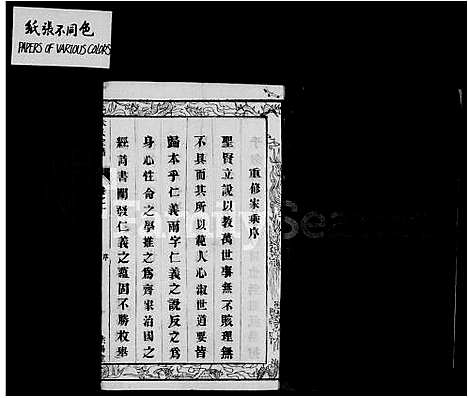 紙張不同色
PAPERS OF VARIOUS COLORS
重修家乘序
聖賢立說以教萬世事無不賅理無
不具而其所以範人心淑世道要皆
歸本乎仁義兩字仁義之說反之為
身心性命之學推之為齊家治國之
經詩書闡發仁義之蘊固不勝枚舉
序
FamilySearch